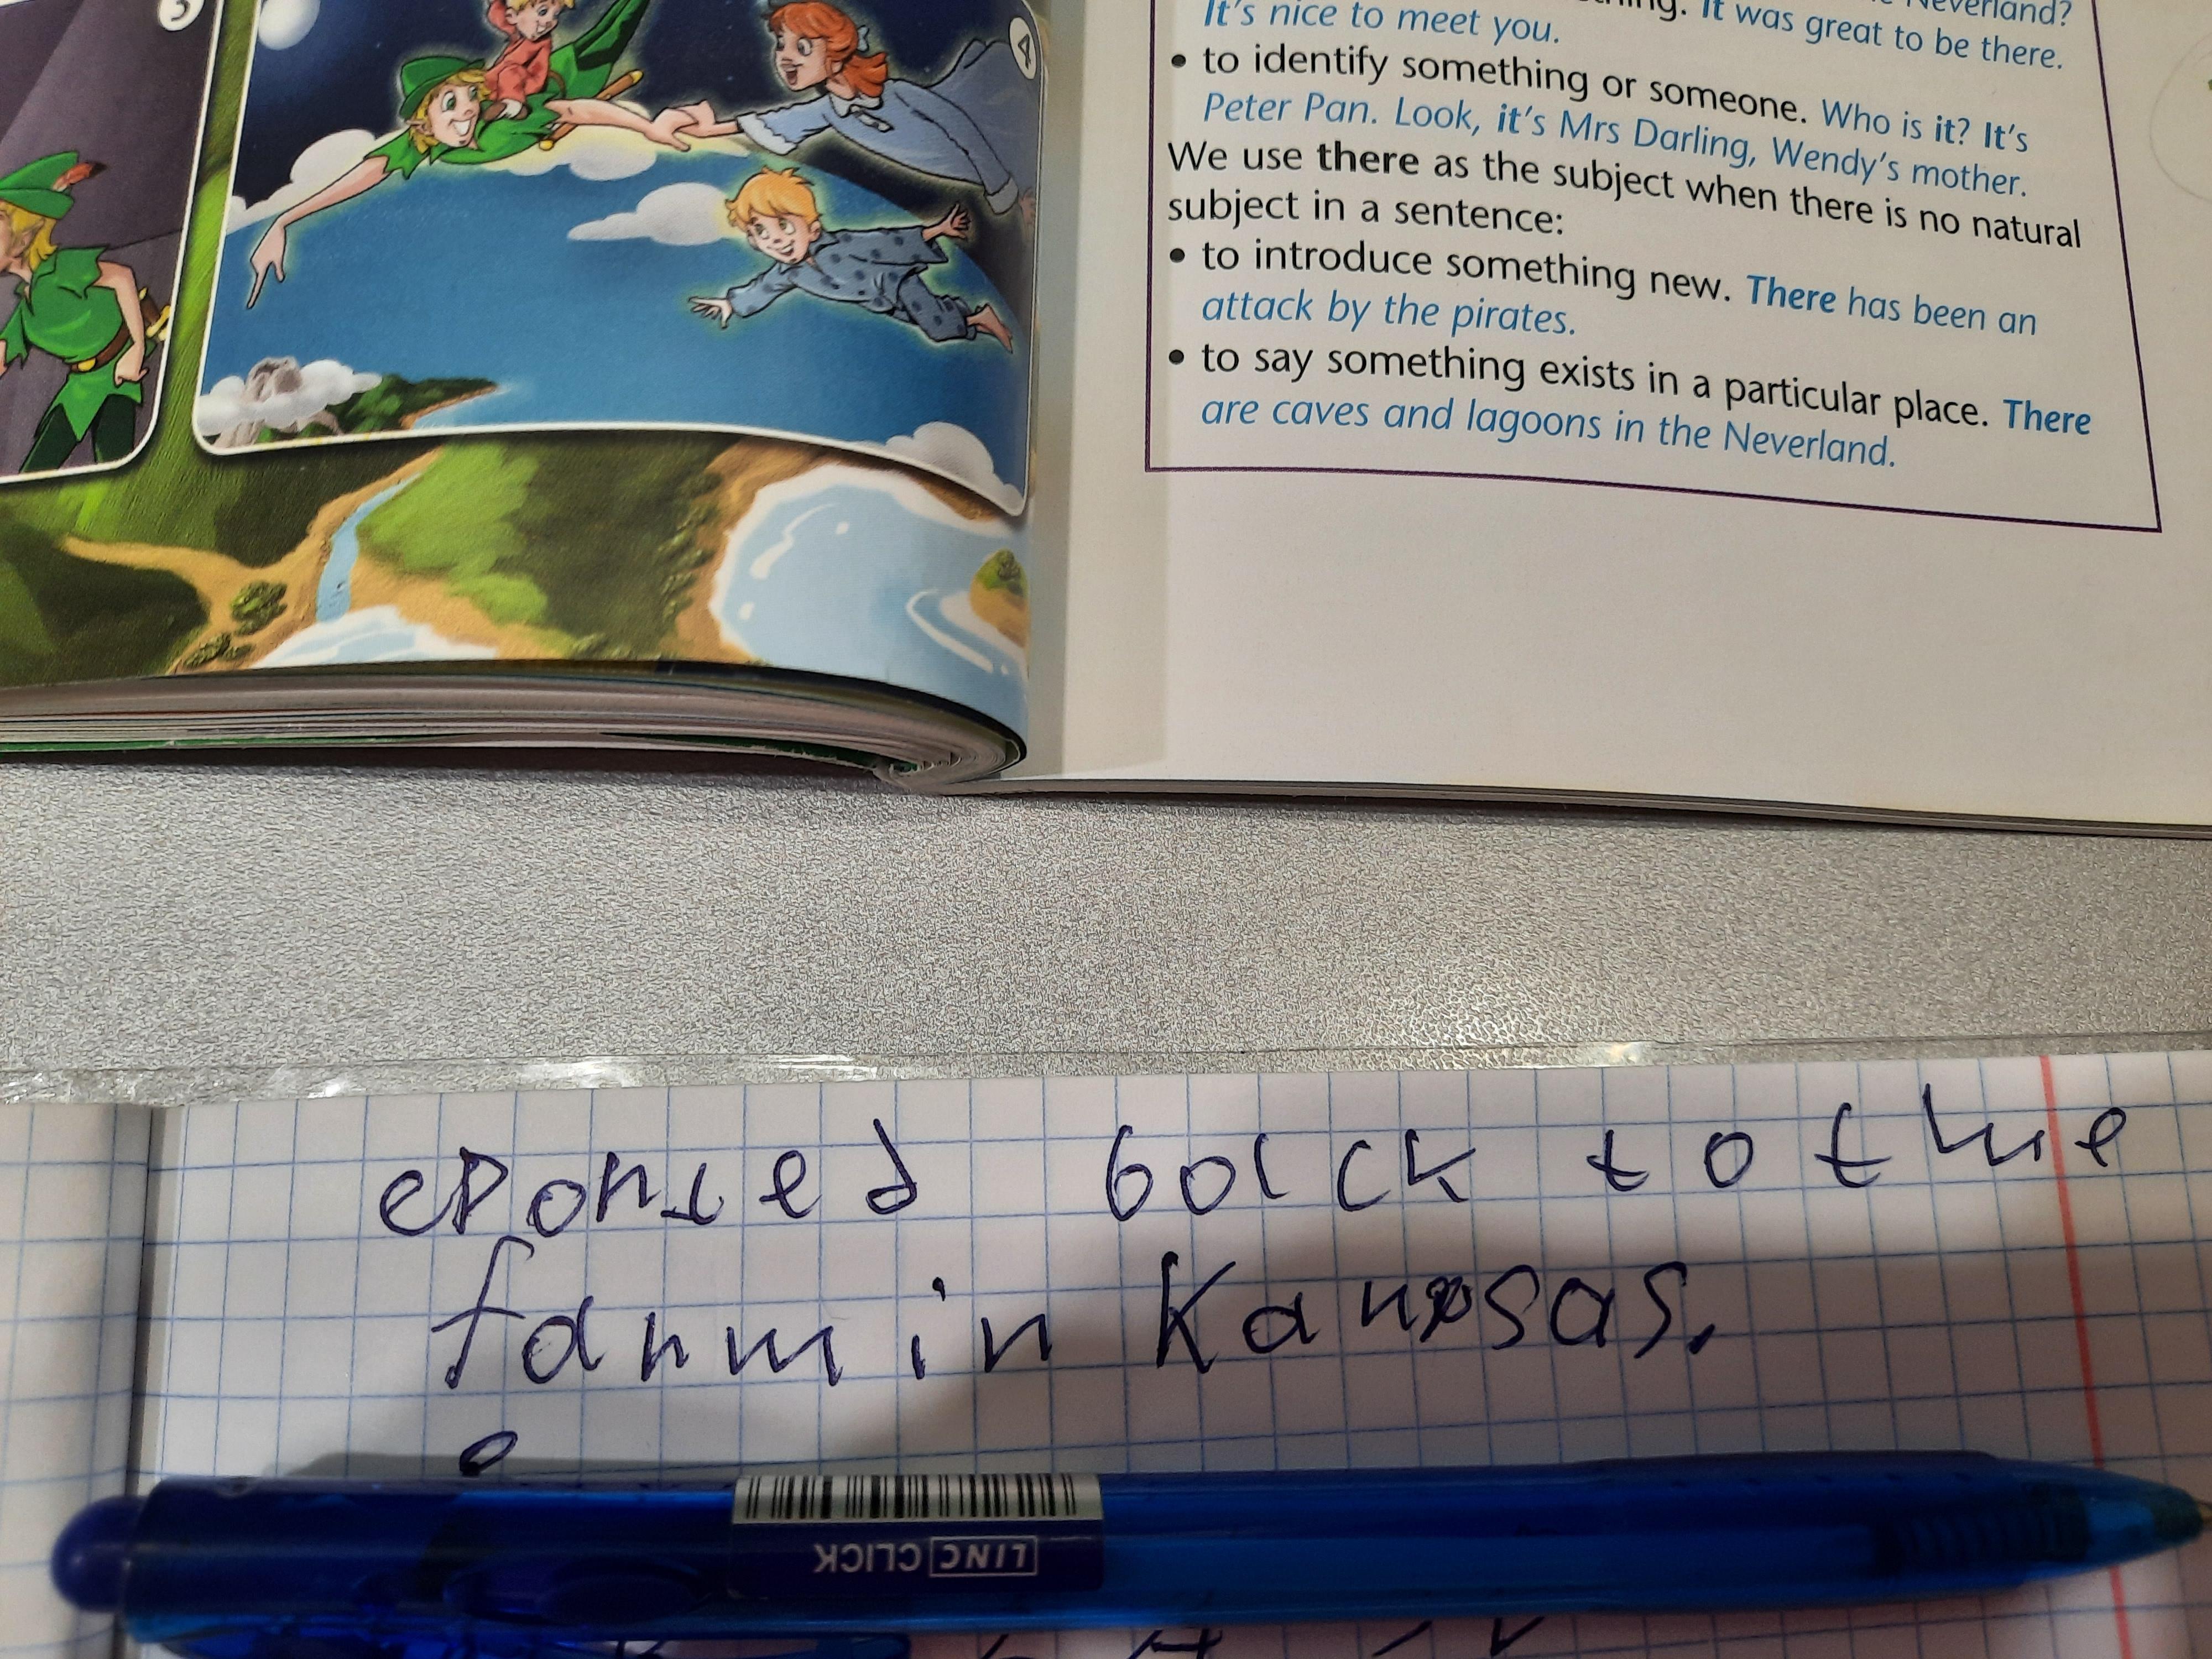 3
4
Neverland?
It's nice to meet you. It was great to be there.
• to identify something or someone. Who is it? It's
Peter Pan. Look, it's Mrs Darling, Wendy's mother.
We use there as the subject when there is no natural
subject in a sentence:
• to introduce something new. There has been an
attack by the pirates.
• to say something exists in a particular place. There
are caves and lagoons in the Neverland.
back to the
farm in Kansas.
LINC CLICK